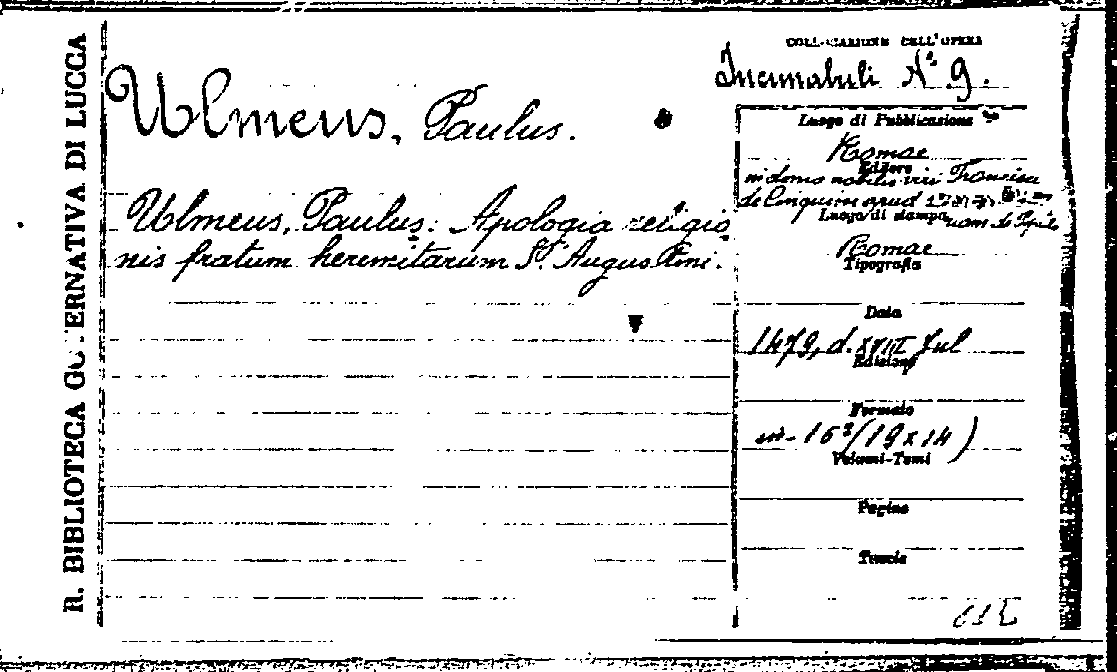 R. BIBLIOTECA GOVERNATIVA DI LUCCA
COLLOCAZIONE DELL'OPERA
Incunabuli N.° 9.
Ulmeus, Paulus.
Ulmeus, Paulus: Apologia religio
nis fratum heremitarum S. Augustini.
Luogo di Pubblicazione
Romae
Editore
in domo nobilis viri Francisci
de Cinquinis apud
Luogo di stampa
Romae
Tipografia
Data
1479, d. XVIII Jul
Edizione
Formato
in-16° (19 x 14)
Volumi-Tomi
Pagine
Tavole